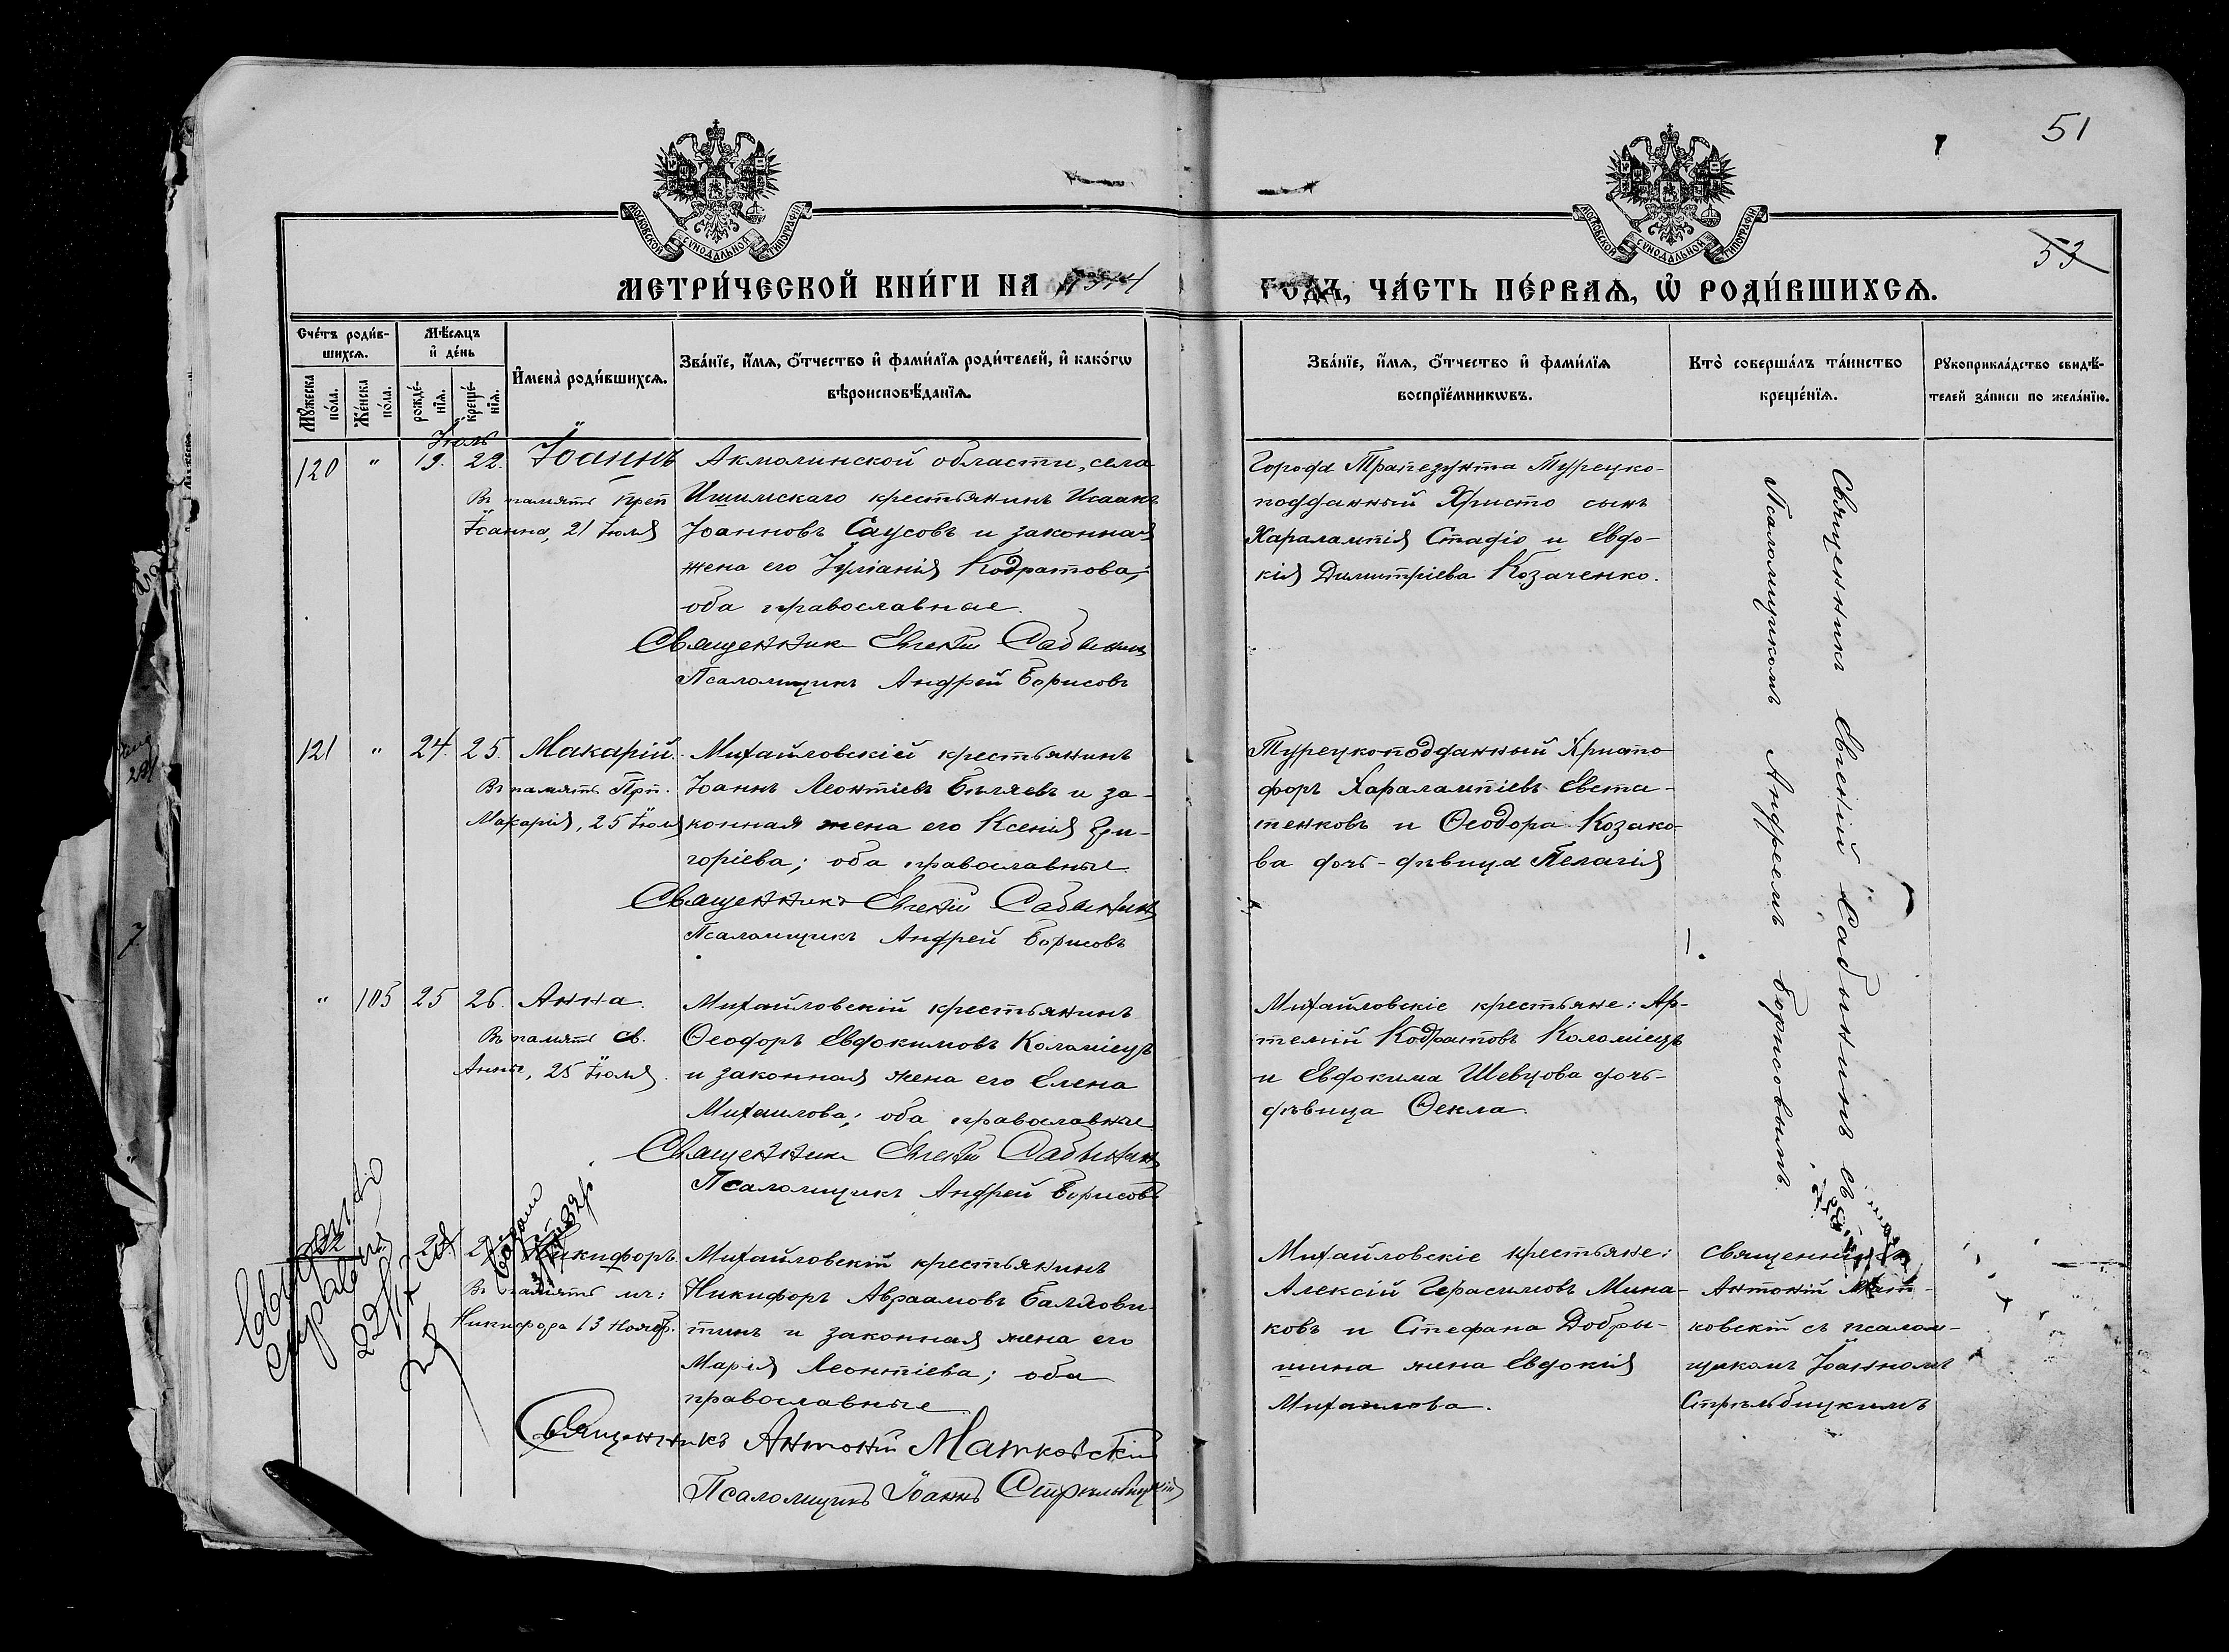 51
53
МОСКОВСКОЙ СѴНОДАЛЬНОЙ ТИПОГРАФІИ
МОСКОВСКОЙ СѴНОДАЛЬНОЙ ТИПОГРАФІИ
МЕТРИ́ЧЕСКОЙ КНИ́ГИ НА
ГОДЪ, ЧА́СТЬ ПЕ́РВАѦ, Ѽ РОДИ́ВШИХСѦ.
Сче́тъ роди́в-
шихсѧ.
Мꙋ́жеска по́ла.
Же́нска по́ла.
Мѣ́сѧцъ и҆ де́нь
рожде́-
нїѧ.
креще́-
нїѧ.
И҆мена̀ роди́вшихсѧ.
Зва́нїе, и҆́мѧ, ѻ҆́тчество и҆ фами́лїѧ роди́телей, и҆ како́гѡ
вѣроисповѣ́данїѧ.
Зва́нїе, и҆́мѧ, ѻ҆́тчество и҆ фами́лїѧ
воспрїе́мникѡвъ.
Кто̀ соверша́лъ та́инство
креще́нїѧ.
Рꙋкоприкла́дство свидѣ́-
телей за́писи по жела́нїю.
Іюль
120 " 19. 22. Іоаннъ
Въ память Преп
Іоанна, 21 Іюля
Акмолинской области, села
Ишимскаго крестьянинъ Исаакъ
Іоанновъ Саусовъ и законная
жена его Іуліанія Кодратова,
оба православные.
Священник Евгений Сабынинъ
Псаломщикъ Андрей Борисовъ
Города Трапезунта Турецко-
подданный Христо сынъ
Харалампія Стадіо и Евдо-
кія Димитріева Козаченко.
Священникъ Евгеній Сабынинъ съ
Псаломщикомъ Андреемъ Борисовымъ
121 " 24. 25. Макарій.
Въ память Прп.
Макарія, 25 Іюля
Михайловскій крестьянинъ
Іоаннъ Леонтіевъ Бѣляевъ и за-
конная жена его Ксенія Гри-
горіева; оба православные.
Священникъ Евгеній Сабынинъ
Псаломщикъ Андрей Борисовъ
Турецкоподданный Христо-
форъ Харалампіевъ Евста-
тенковъ и Ѳеодора Козако-
ва дочь-дѣвица Пелагія
" 105 25 26. Анна.
Въ память Св.
Анны, 25 Іюля.
Михайловскій крестьянинъ
Ѳеодоръ Евдокимовъ Коломіецъ
и законная жена его Елена
Михаилова; оба православные
Священникъ Евгеній Сабынинъ
Псаломщикъ Андрей Борисовъ
Михайловскіе крестьяне: Ар-
темій Кодратовъ Коломіецъ
и Евдокима Шевцова дочь-
дѣвица Ѳекла.
Никифоръ.
Въ память мч:
Никифора 13 Нояб.
Михайловскій крестьянинъ
Никифоръ Авраамовъ
и законная жена его
Марія Леонтіева; оба
православные
Священникъ Антоній Матковскій
Псаломщикъ Іоаннъ Стрѣльбицкій
Михайловскіе крестьяне:
Алексій Герасимовъ Мина-
ковъ и Стефана Добры-
шина жена Евдокія
Михаилова.
Священникъ
Антоній Мат-
ковскій съ псалом-
щикомъ Іоанномъ
Стрѣльбицкимъ